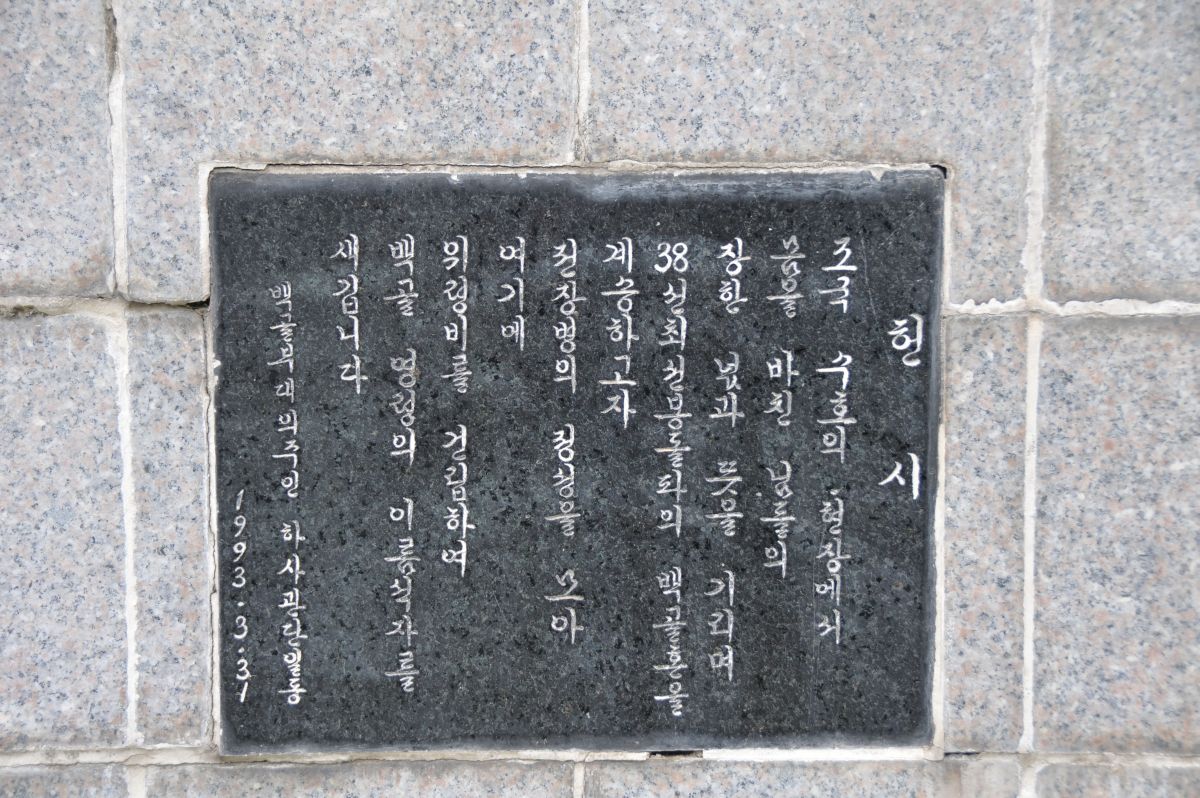 헌 시
조국 수호의 현장에서
몸을 바친 님들의
장한 넋과 뜻을 기리며
38선최선봉돌파의 백골혼을
계승하고자
전장병의 정성을 모아
여기에
위령비를 건립하여
백골 영령의 이름석자를
새깁니다
백골부대의주인 하사관단일동
1993.3.31